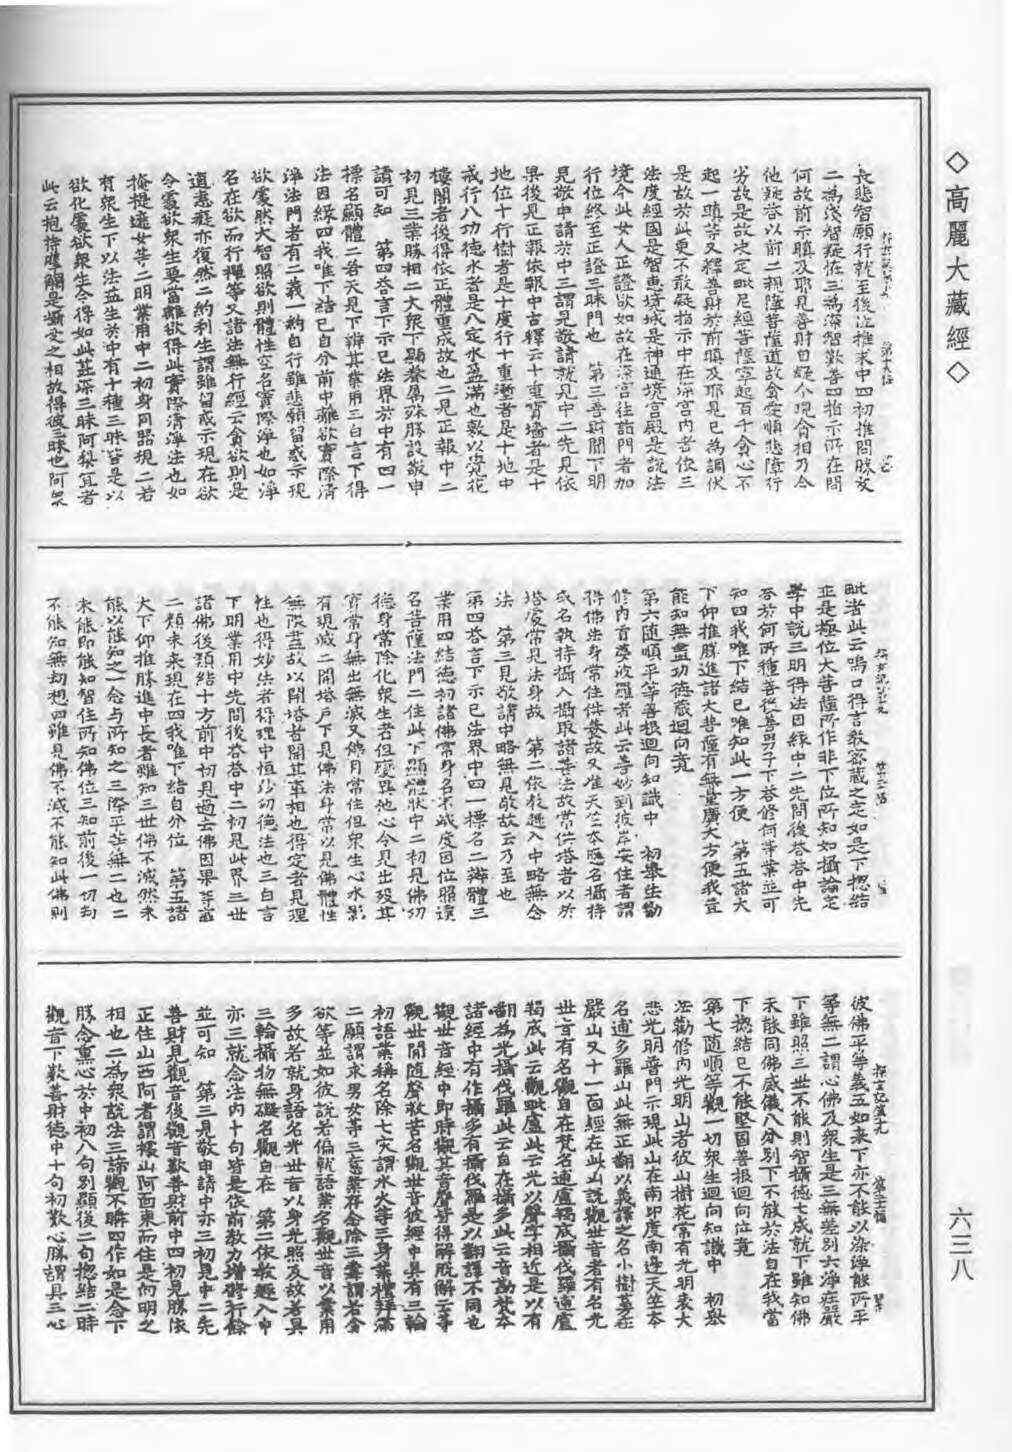 ◇高麗大藏經◇
六三八
長悲智願行就至後泣推求中四初推問勝友
二爲淺智疑怪三爲深智歎善四指示所在問
何故前示瞋及耶見善財自疑今現貪相乃令
他疑答以前二相隨菩薩道故貪愛順悲障行
劣故是故決定毗尼經菩薩寧起百千貪心不
起一瞋等又釋善財於前瞋及耶見已爲調伏
是故於此更不敢疑指示中在深宮內者依三
法度經國是智惠境城是神通境宮殿是說法
境今此女人正證欲如故在深宮往詣門者加
行位終至正證三昧門也 第三善財聞下明
見敬申請於中三謂見敬請就見中二先見依
果後見正報依報中古釋云十重寶墻者是十
地位十行樹者是十度行十重壍者是十地中
戒行八功德水者是八定水盈滿也敷以㝠花
樓閣者後得依正體重成故也二見正報中二
初見三業勝相二大衆下顯眷屬殊勝設敬申
請可知 第四答言下示已法界於中有四一
標名顯體二若天見下辨其業用三白言下得
法因緣四我唯下結已自分前中離欲實際清
淨法門者有二義一約自行雖悲願留惑示現
欲處然大智照欲則體性空名實際淨也如淨
名在欲而行禪等又諸法無行經云貪欲則是
道恚癡亦復然二約利生謂雖留惑示現在欲
令處欲衆生要當離欲得此實際清淨法也如
掩捷遮女等二明業用中二初身同器現二若
有衆生下以法益生於中有十種三昧皆是以
欲化處欲衆生令得如此甚深三昧阿梨宜者
此云抱持摩觸是攝受之相故得彼三昧也阿衆
毗者此云嗚口得言教密藏之定如是下揔結
並是極位大菩薩所作非下位所知如攝論定
學中說三明得法因緣中二先問後答答中先
答於何所種善從善男子下答修何等業並可
知四我唯下結已唯知此一方便 第五諸大
下仰推勝進諸大菩薩有無量廣大方便我豈
能知無盡功德藏迴向竟
第六随順平等善根迴向知識中 初擧生勸
修內首婆波羅者此云善妙到彼岸安住者謂
得佛法身常住供養故又准天竺本應名攝持
或名執持攝入攝取諸善法故常供塔者以於
塔處常見法身故 第二依教趣入中略無念
法 第三見敬請中略無見敬故云乃至也
第四答言下示已法界中四一標名二辨體三
業用四結德初諸佛常身名不滅度因位照達
名菩薩法門二住此下顯體狀中二初見佛功
德身常除化衆生者但變異他心今見出歿其
實常身無出無滅又佛月常住但衆生心水影
有現滅二開塔戶下見佛法身常以見佛體性
無際盡故以開塔者開其事相也得定者見理
性也得妙法者得理中恒沙功德法也三自言
下明業用中先問後答答中二初見此界三世
諸佛後類結十方前中初見過去佛因果等或
二類未來現在四我唯下結自分位 第五諸
大下仰推勝進中長者雖知三世佛不滅然未
能以能知之一念与所知之三際平等無二也二
未能即能知智住所知佛位三知前後一切劫
不能知無劫想四雖見佛不滅不能知此佛則
彼佛平等義五如來下亦不能以染淨能所平
等無二謂心佛及衆生是三無差別六淨莊嚴
下雖照三世不能則智攝德七成就下雖知佛
未能同佛威儀八分別下不能於法自在我當
下揔結已不能堅固善根迴向位竟
第七随順等觀一切衆生迴向知識中 初擧
法勸修內光明山者彼山樹花常有光明表大
悲光明普門示現此山在南印度南邊天竺本
名逋多羅山此無正翻以義譯之名小樹蔓莊
嚴山又十一面經在此山說觀世音者有名光
世音有名觀自在梵名逋盧羯底攝伐羅逋盧
羯底此云觀毗盧此云光以聲字相近是以有
翻爲光攝伐羅此云自在攝多此云音勘梵本
諸經中有作攝多有攝伐羅是以翻譯不同也
觀世音經中即時觀其音聲皆得解脫解云等
觀世間随聲救苦名觀世音彼經中具有三輪
初語業稱名除七灾謂水火等三身業禮拜滿
二願謂求男女等三意業存念除三毒謂若貪
欲等並如彼說若偏就語業名觀世音以業用
多故若就身語名光世音以身光照及故若具
三輪攝物無礙名觀自在 第二依教趣入中
亦三就念法內十句皆是依前教力增修行餘
並可知 第三見敬申請中亦三初見中二先
善財見觀音後觀音歎善財前中四初見勝依
正住山西阿者謂樣山阿面東而住是向明之
相也二爲衆說法三諦觀不瞬四作如是念下
勝念熏心於中初八句別顯後二句揔結二時
觀音下歎善財德中十句初歎心勝謂具三心